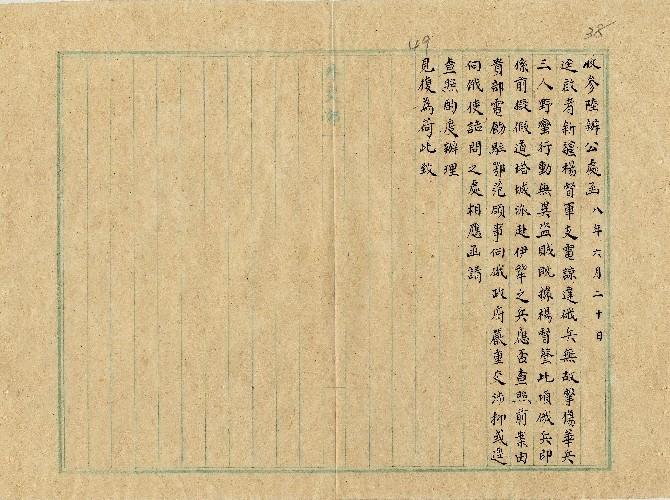 38
49
收參陸辦公處函 八年六月二十日
逕啟者新疆楊督軍支電諒達俄兵無故擊傷華兵
三人野蠻行動無異盜賊既據楊督聲此項俄兵即
係前擬假道塔城派赴伊犂之兵應否查照前案由
貴部電飭駐鄂范領事向俄政府嚴重交涉抑或逕
向俄使詰問之處相應函請
查照酌度辦理
見復為荷此致